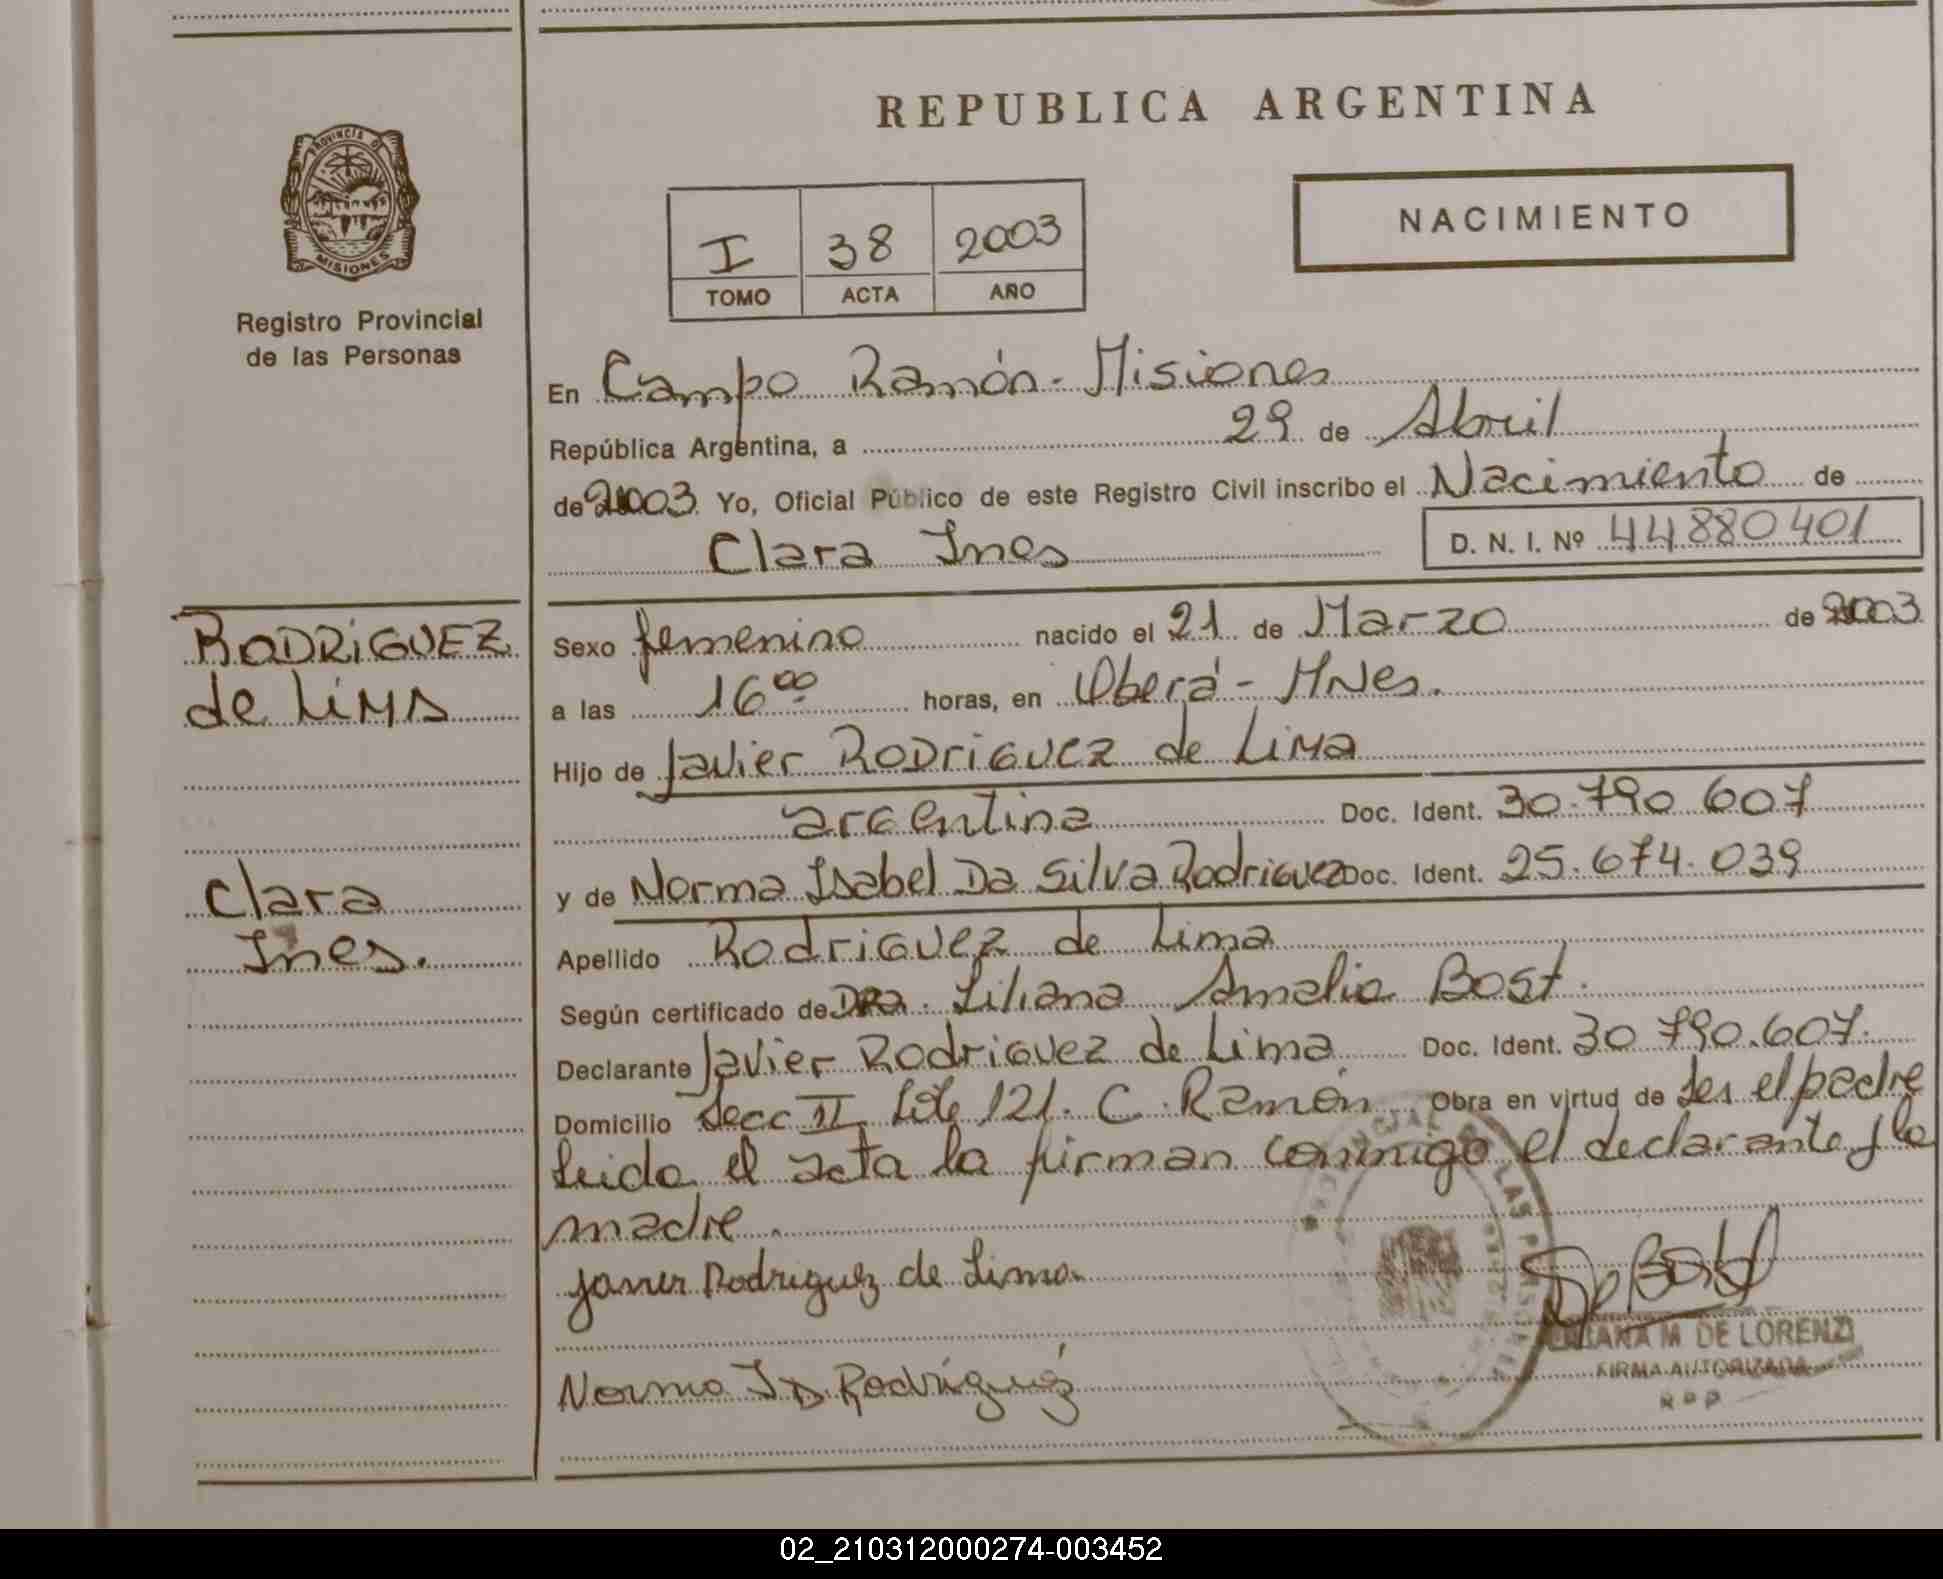 REPUBLICA ARGENTINA
PROVINCIA DE
MISIONES
Registro Provincial
de las Personas
I 38 2003
TOMO ACTA AÑO
NACIMIENTO
En Campo Ramón - Misiones
República Argentina, a 29 de Abril
de 2003 Yo, Oficial Público de este Registro Civil inscribo el Nacimiento de
Clara Ines D. N. I. Nº 44880401
RODRIGUEZ
de LIMA
Clara
Ines.
Sexo femenino nacido el 21 de Marzo de 2003
a las 16 00 horas, en Oberá - MNes.
Hijo de Javier RODRIGUEZ de LIMA
argentina Doc. Ident. 30.790.607
y de Norma Isabel Da Silva Rodriguez Doc. Ident. 25.674.039
Apellido Rodriguez de Lima
Según certificado de DRA. Liliana Amalia Bost.
Declarante Javier Rodriguez de Lima Doc. Ident. 30 790.607.
Domicilio Secc II Lote 121. C. Ramón Obra en virtud de Ser el padre
Leida el acta la firman conmigo el declarante y la
madre.
Javier Rodriguez de Lima
Norma I D Rodríguez
M DE LORENZI
FIRMA AUTORIZADA
R P P
02_210312000274-003452